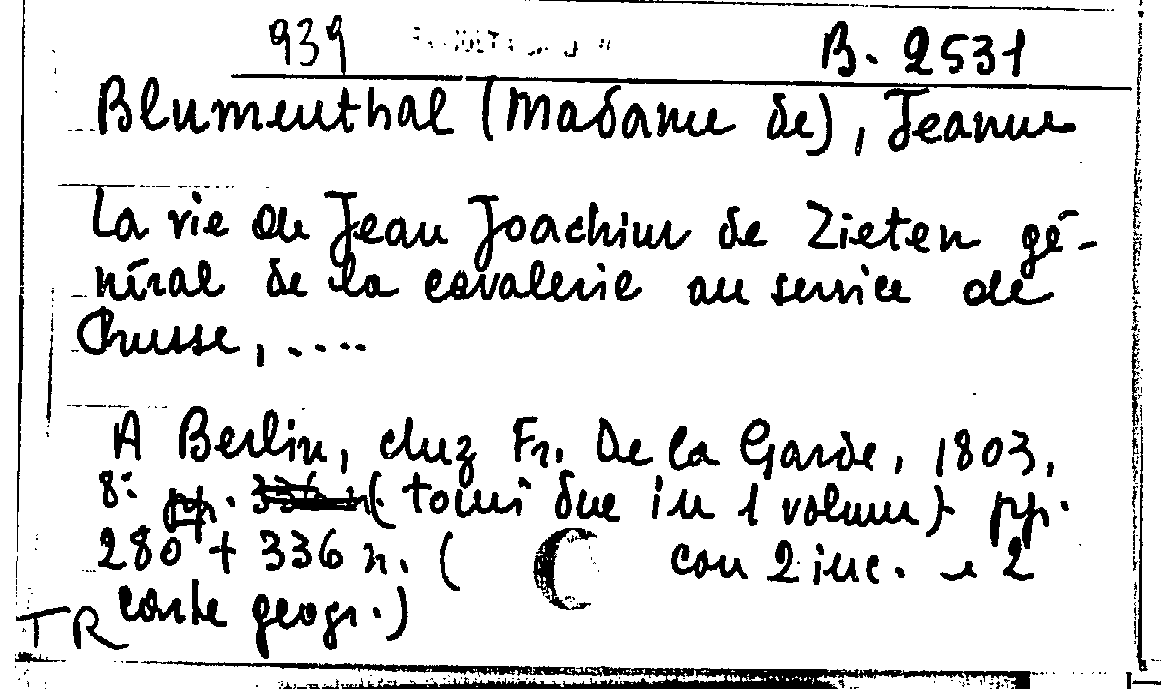 939 B. 2531
Blumenthal (Madame de), Jeanne
La vie de Jean Joachim de Zieten gé-
néral de la cavalerie au service de
Prusse, ....
A Berlin, chez Fr. De la Garde, 1803,
8° pp. 336 n. (tomi due in 1 volume) pp.
280 + 336 n. ( con 2 inc. e 2
carte geogr.)
TR